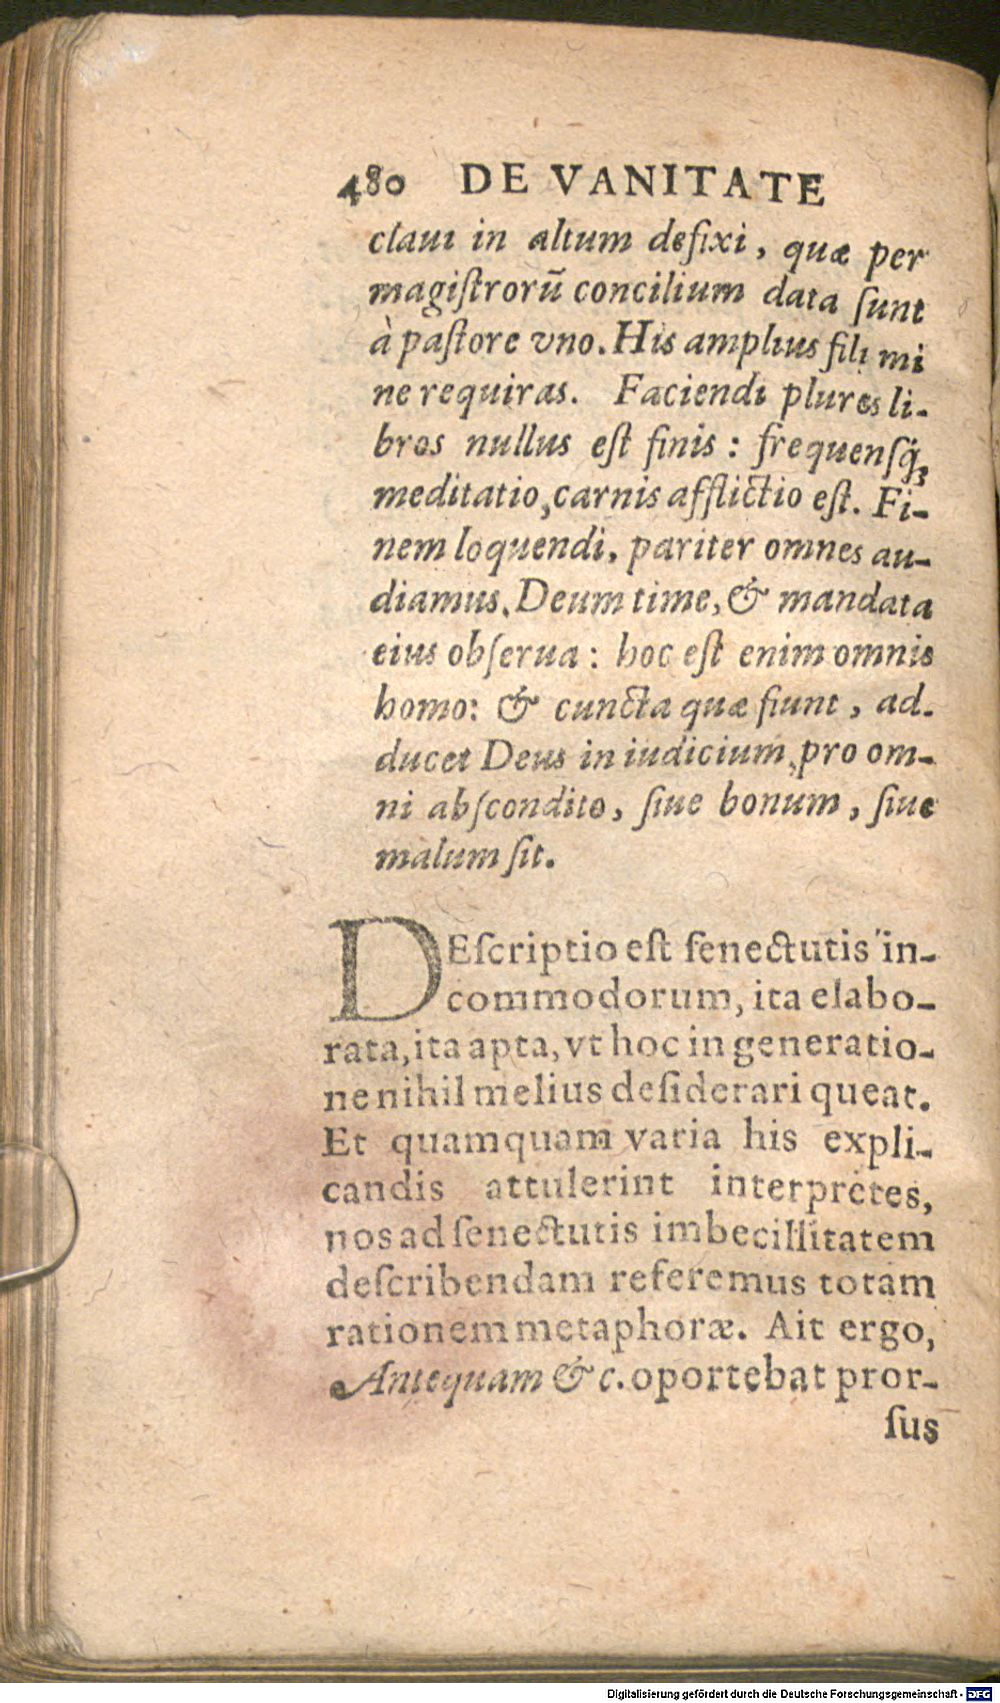 480 DE VANITATE
claui in altum defixi, quæ per
magiſtrorũ concilium data ſunt
à paſtore vno. His amplius fili mi
ne requiras. Faciendi plures li-
bros nullus eſt finis: frequenſq́;
meditatio, carnis afflictio eſt. Fi-
nem loquendi, pariter omnes au-
diamus. Deum time, & mandata
eius obſerua: hoc eſt enim omnis
homo: & cuncta quæ fiunt, ad-
ducet Deus in iudicium, pro om-
ni abſcondito, ſiue bonum, ſiue
malum ſit.
DEſcriptio eſt ſenectutis in-
commodorum, ita elabo-
rata, ita apta, vt hoc in generatio-
ne nihil melius deſiderari queat.
Et quamquam varia his expli-
candis attulerint interpretes,
nos ad ſenectutis imbecillitatem
deſcribendam referemus totam
rationem metaphoræ. Ait ergo,
Antequam & c. oportebat pror-
ſus
Digitalisierung gefördert durch die Deutsche Forschungsgemeinschaft - DFG